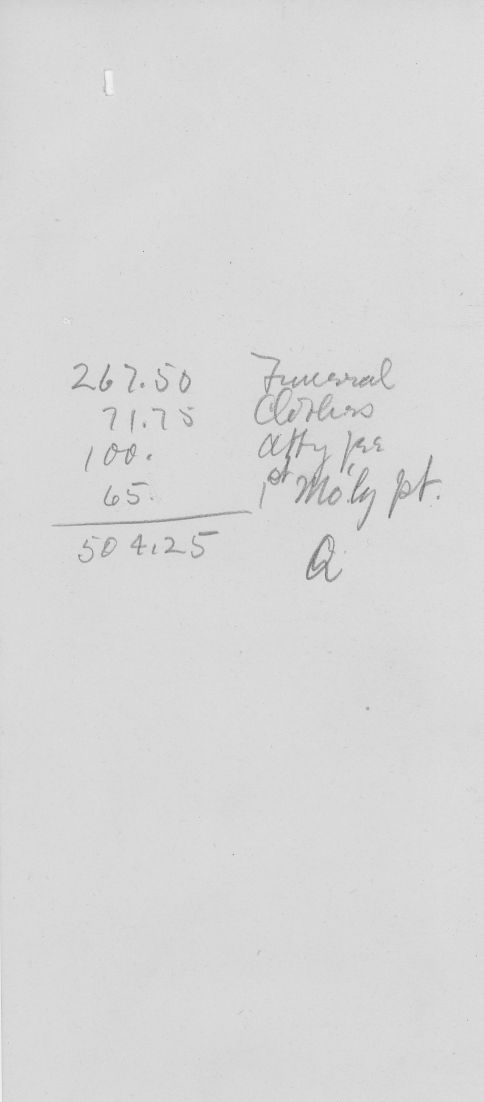 267.50 Funeral
71.75 Clothes
100. Atty fee
65. 1st Mo'ly pt.
504.25
Q